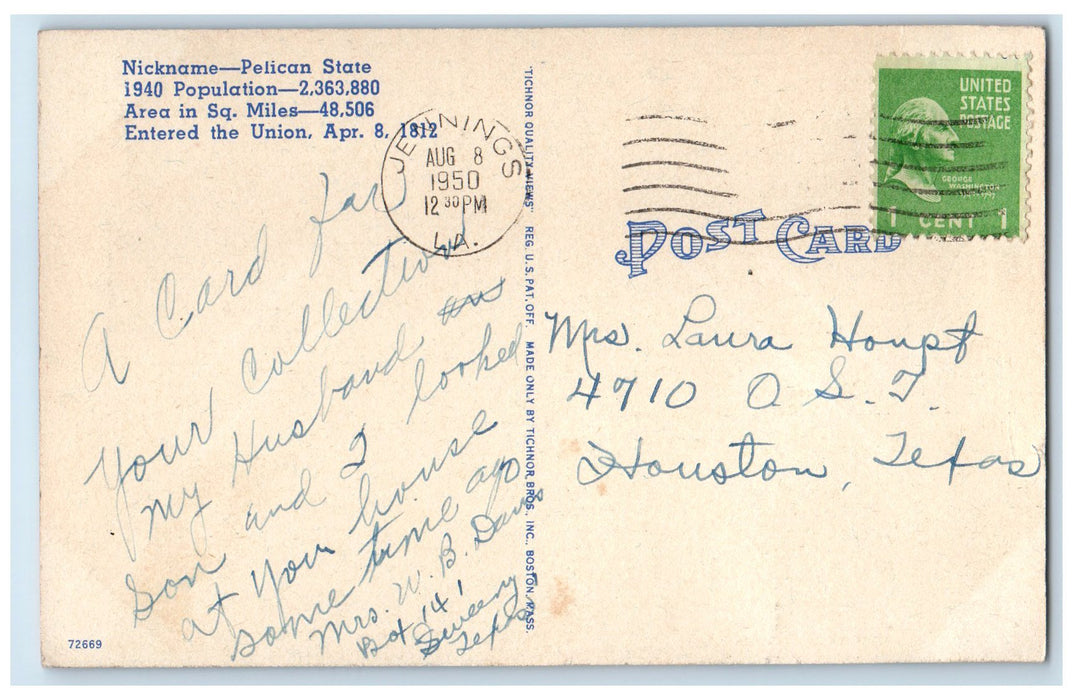 Nickname—Pelican State
1940 Population—2,363,880
Area in Sq. Miles—48,506
Entered the Union, Apr. 8, 1812
JENNINGS
AUG 8
1950
12 30 PM
LA.
UNITED
STATES
POSTAGE
GEORGE
WASHINGTON
1 CENT 1
POST CARD
A Card for
your collection
my Husband
son and I looked
at your house
some time ago
Mrs. W. B. Davis
Box 141
Sweeny
Texas
"TICHNOR QUALITY VIEWS" REG. U.S. PAT. OFF. MADE ONLY BY TICHNOR BROS., INC., BOSTON, MASS.
Mrs. Laura Houpt
4710 O. S. T.
Houston, Texas
72669